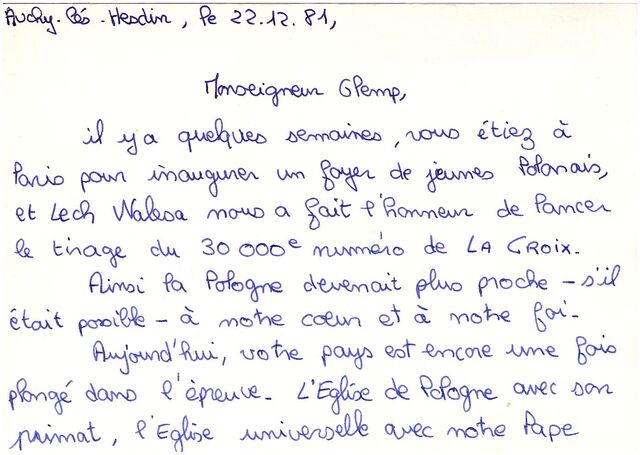 Auchy-lès-Hesdin, le 22.12.81,
Monseigneur Glemp,
il y a quelques semaines, vous étiez à
Paris pour inaugurer un foyer de jeunes Polonais,
et Lech Walesa nous a fait l'honneur de lancer
le tirage du 30 000e numéro de LA CROIX.
Ainsi la Pologne devenait plus proche - s'il
était possible - à notre cœur et à notre foi-
Aujourd'hui, votre pays est encore une fois
plongé dans l'épreuve. L'Eglise de Pologne avec son
primat, l'Eglise universelle avec notre Pape